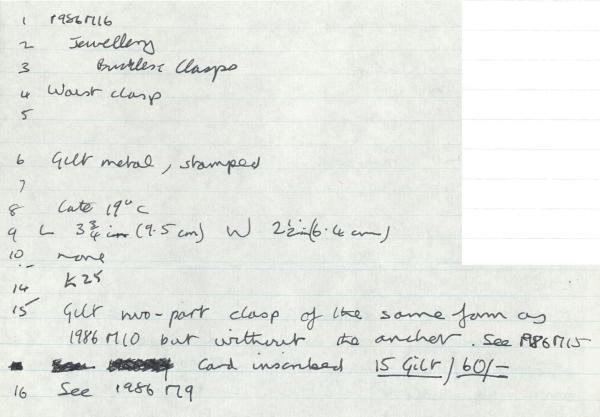 1 1986 M16
2 Jewellery
3 Buckles & Clasps
4 Waist clasp
5
6 Gilt metal, stamped
7
8 Late 19th c
9 L 3 3/4 in (9.5 cm) W 2 1/2 in (6.4 cm)
10 none
14 £25
15 Gilt two-part clasp of the same form as
1986 M10 but without the anchor. See 1986 M15
Card inscribed 15 Gilt / 60/-
16 See 1986 M9